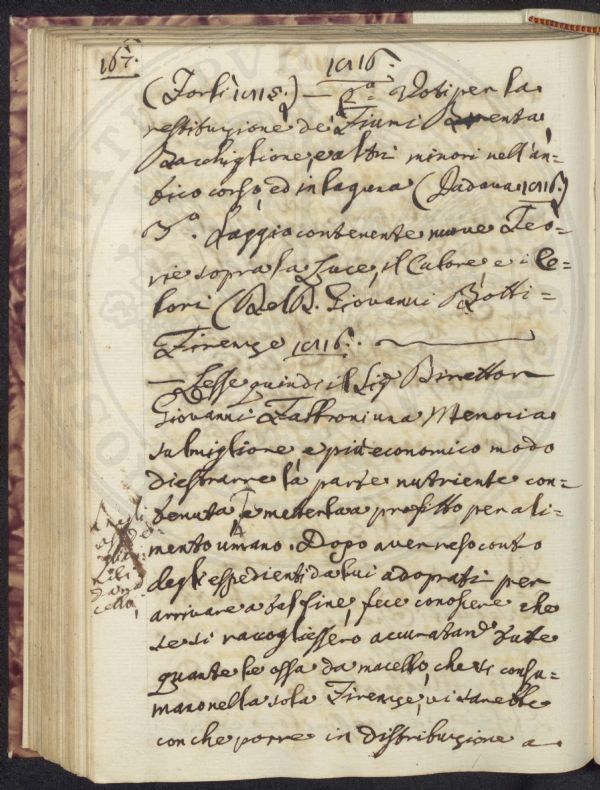 167.
1816.
(Forlì 1815.) — 2.° Voti per la
restituzione dei Fiumi Brenta,
Bacchiglione, e altri minori nell'an=
tico corso, ed in laguna (Padova 1816.)
3.° Saggio contenente nuove Teo=
rie sopra la Luce, il Calore e i Co=
lori (Del D. Giovanni Botti=
Firenze 1816.
— Lesse quindi il Sig Direttore
Giovanni Fabbroni una Memoria
sul migliore e più economico modo
di estrarre la parte nutriente con=
tenuta, e metterla a profitto per ali=
mento umano. Dopo aver reso conto
degli espedienti da lui adoprati per
arrivare a tal fine, fece conoscere che
se si raccogliessero accuratam.e tutte
quante le ossa da macello, che si consu=
mano nella sola Firenze, vi sarebbe
con che porre in distribuzione a
negli
ossi
degli
da ma
cello,